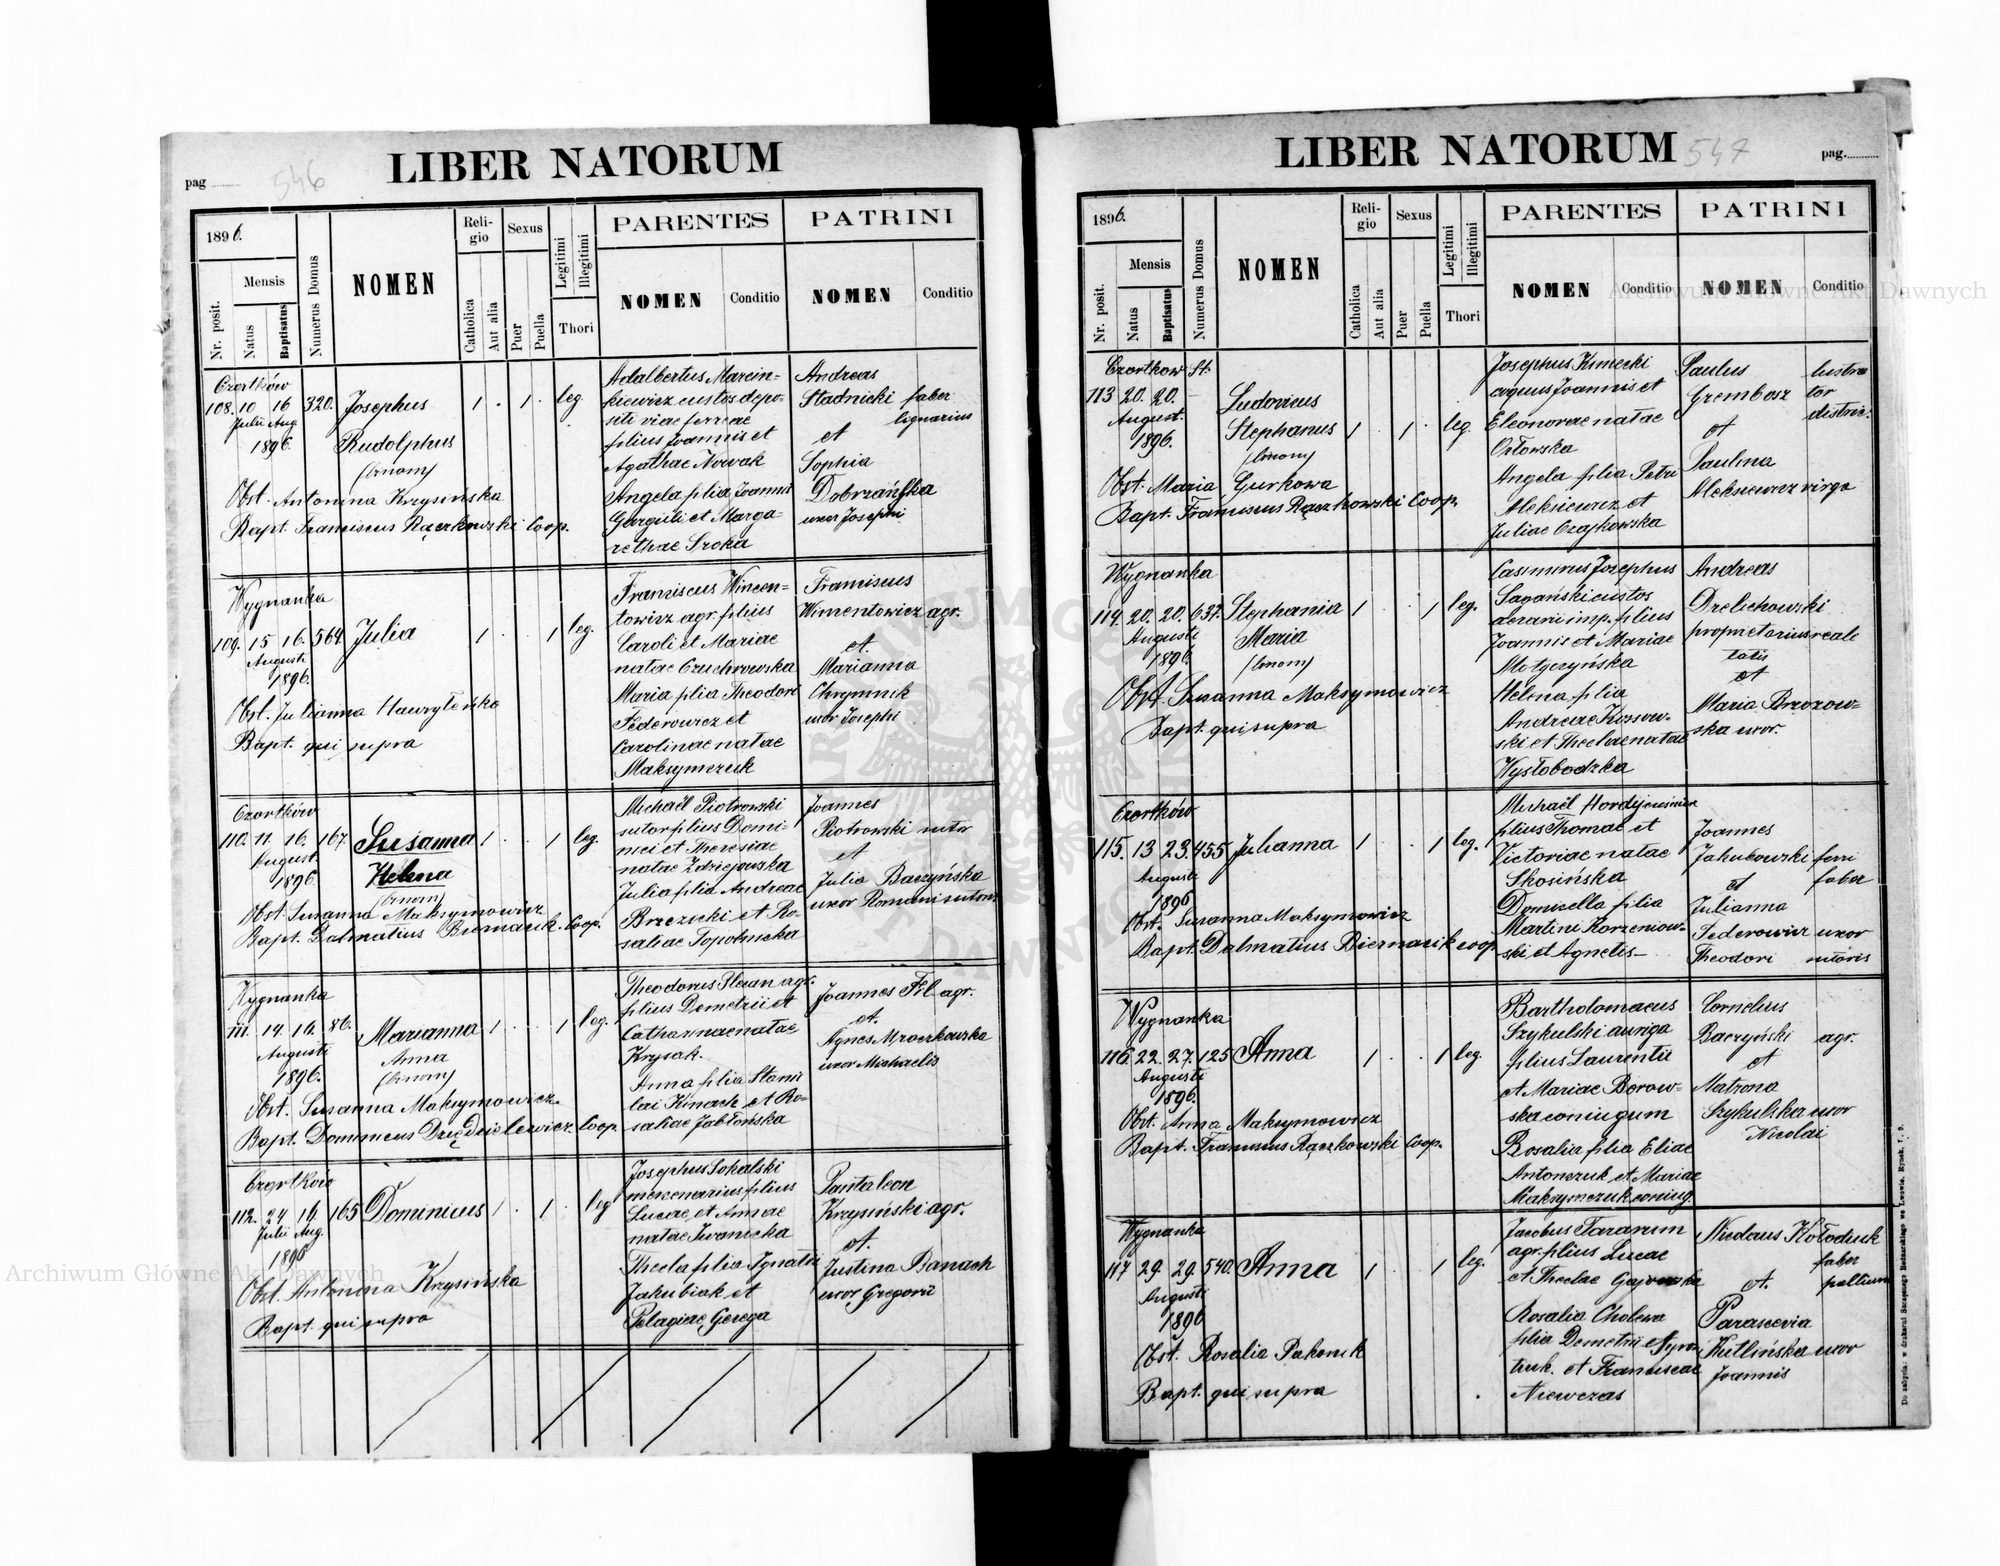 LIBER NATORUM
pag
546
1896.
Nr. posit.
Mensis
Natus
Baptisatus
Numerus Domus
NOMEN
Religio
Catholica
Aut alia
Sexus
Puer
Puella
Legitimi
Illegitimi
Thori
PARENTES
NOMEN
Conditio
PATRINI
NOMEN
Conditio
Czortków
108. 10 16 320. Josephus 1 . 1 . leg.
Julii Aug
1896. Rudolphus
(binom)
Obst. Antonina Krzysińska
Bapt. Franciscus Rączkowski Coop.
Adalbertus Marcin=
kiewicz custos depo=
siti viae ferreae
filius Joannis et
Agathae Nowak
Angela filia Joannis
Garguli et Marga=
rethae Sroka
Andreas
Stadnicki faber
lignarius
et
Sophia
Dobrzańska
uxor Josephi
Wygnanka
109. 15 16. 564 Julia 1 . . 1 leg.
Augusti
1896.
Obst. Julianna Hawryleńko
Bapt. qui supra
Franciscus Wincen=
towicz agr. filius
Caroli et Mariae
natae Czuchrowska
Maria filia Theodori
Federowicz et
Carolinae natae
Maksymczuk
Franciscus
Wincentowicz agr.
et.
Marianna
uxor Josephi
Czortków
110. 11. 16. 167. Susanna 1 . . 1 leg.
August.
1896. Helena
(binom)
Obst. Susanna Maksymowicz
Bapt. Dalmatius Biernasik Coop.
Michaël Piotrowski
sutor filius Domi=
nici et Theresiae
natae Zdziejowska
Julia filia Andreae
Brzezicki et Ro=
saliae Topolnicka
Joannes
Piotrowski sutor
et
Julia Baczyńska
uxor Romani sutoris
Wygnanka
111. 14. 16. 86. Marianna 1 . . 1 leg.
Augusti Anna
1896. (binom)
Obst. Susanna Maksymowicz.
Bapt. Dominicus Dzędzielewicz Coop.
Theodorus agr.
filius Demetrii et
Catharinae natae
Krysak.
Anna filia Stanis
lai Kinach et Ro=
saliae Jabłońska
Joannes agr.
et.
Agnes Mroczkowska
uxor Michaelis
Czortków
112. 24 16. 165 Dominicus 1 . 1 . leg
Julii Aug.
1896
Obst. Antonina Krzysińska
Bapt. qui supra
Josephus Sokalski
mercenarius filius
Lucae et Annae
natae Iwanicka
Thecla filia Ignatii
Jakubiak et
Pelagiae Gerega
Pantaleon
Krzysiński agr.
et.
Justina Banach
uxor Gregorii
LIBER NATORUM
547
pag.
1896.
Nr. posit.
Mensis
Natus
Baptisatus
Numerus Domus
NOMEN
Religio
Catholica
Aut alia
Sexus
Puer
Puella
Legitimi
Illegitimi
Thori
PARENTES
NOMEN
Conditio
PATRINI
NOMEN
Conditio
Czortków St.
113 20. 20. - Ludovicus
August. Stephanus 1 . 1 . leg.
1896. (binom)
Obst. Maria Gurkowa
Bapt. Franciscus Rączkowski Coop.
Josephus Kimecki
coquus Joannis et
Eleonorae natae
Orłowska
Angela filia Petri
Aleksiewicz et
Juliae Czajkowska
Paulus lustra
Grembosz tor
et district.
Paulina
Aleksiewicz virgo
Wygnanka
114. 20. 20. 637. Stephania 1 . . 1 leg.
Augusti Maria
1896. (binom)
Obst. Susanna Maksymowicz
Bapt. qui supra
Casimirus Josephus
Sagański custos
aerarii imp. filius
Joannis et Mariae
Helena filia
Andreae Kossow=
ski et Theclae natae
Wysłobodzka
Andreas
Drelichowski
proprietarius reali
tatis
et
Maria Brzozow=
ska uxor.
Czortków
115. 13 23. 455 Julianna 1 . . 1 leg.
Augusti
1896
Obst. Susanna Maksymowicz
Bapt. Dalmatius Biernasik coop.
Michaël
filius Thomae et
Victoriae natae
Skosińska
Domicella filia
Martini Korzeniow=
ski et Agnetis
Joannes
Jakubowski ferri
et faber
Julianna
Federowicz uxor
Theodori sutoris
Wygnanka
116. 22. 27. 125 Anna 1 . . 1 leg.
Augusti
1896.
Obst. Anna Maksymowicz
Bapt. Franciscus Rączkowski Coop.
Bartholomaeus
Szykulski auriga
filius Laurentii
et Mariae Borow=
ska coniugum
Rosalia filia Eliae
Antonczuk et Mariae
Maksymczuk coniug.
Cornelius
Baczyński agr.
et
Matrona
Szykulska uxor
Nicolai
Wygnanka
117 29. 29. 540. Anna 1 . . 1 leg.
Augusti
1896
Obst. Rosalia Pakonik
Bapt. qui supra
Jacobus Tararuin
agr. filius Lucae
et Theclae Gajowska
Rosalia Cholewa
filia Demetrii
et Franciscae
Niewczas
Nicolaus Kołodziuk
faber
et. pellium
Parascevia
Kutlińska uxor
Joannis
Do nabycia: w drukarni Szczęsnego Bednarskiego we Lwowie. Rynek, l. 9.
Archiwum Główne Akt Dawnych
Archiwum Główne Akt Dawnych
ARCHIWUM GŁÓWNE AKT DAWNYCH